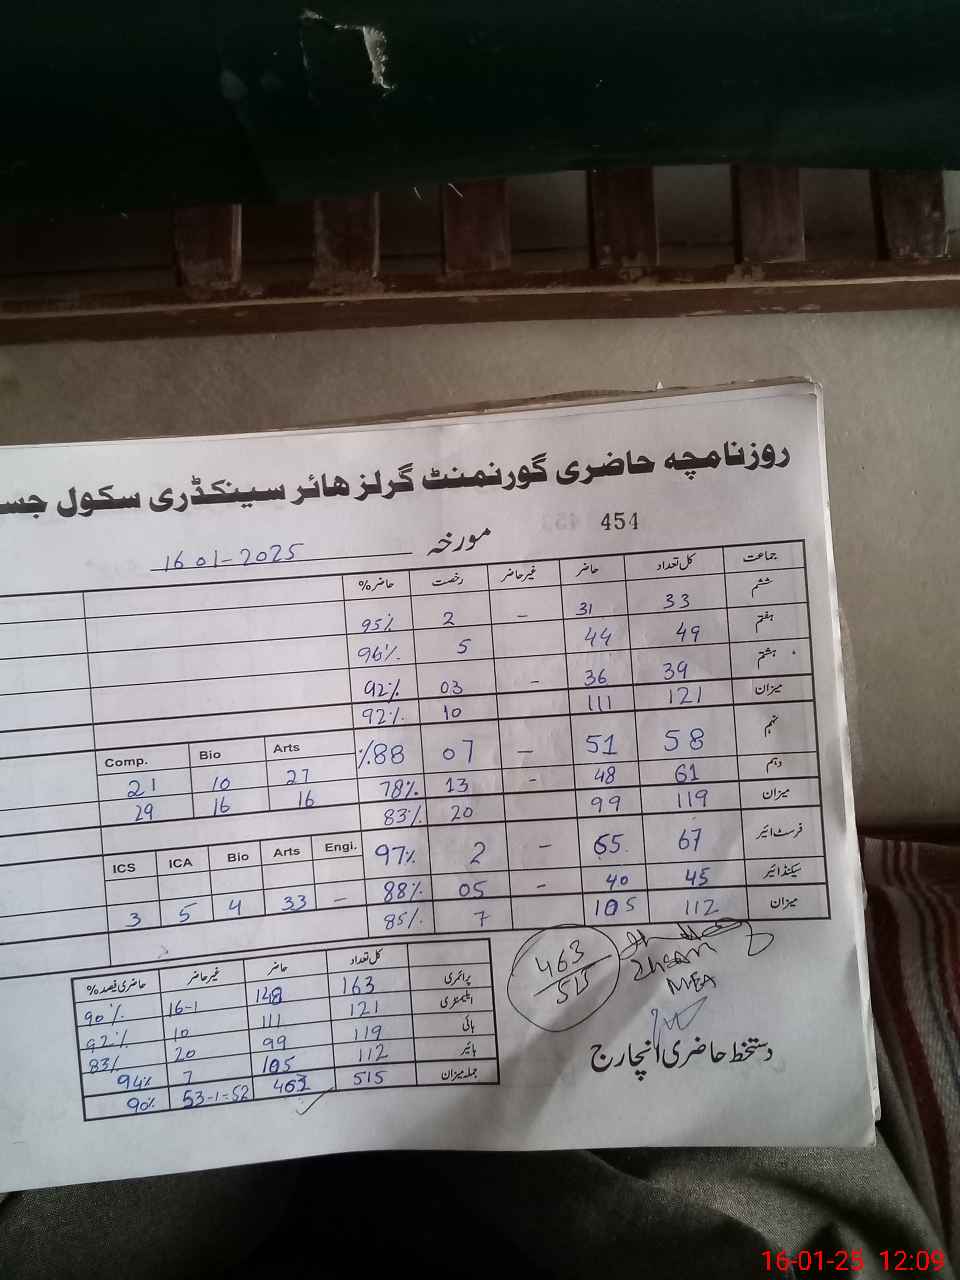 روزنامچہ حاضری گورنمنٹ گرلز ھائر سیکنڈری سکول جس
454
مورخہ 16 01-2025
جماعت کل تعداد حاضر غیر حاضر رخصت حاضر%
ششم 33 31 - 2 95%
ہفتم 49 44 5 96%
ہشتم 39 36 - 03 92%
میزان 121 111 10 92%
نہم 58 51 - 07 %88 Arts Bio Comp.
27 10 21
دہم 61 48 - 13 78% 16 16 29
میزان 119 99 20 83%
فرسٹ ائیر 67 65 - 2 97% Engi. Arts Bio ICA ICS
سیکنڈ ائیر 45 40 - 05 88% - 33 4 5 3
میزان 112 105 7 85%
کل تعداد حاضر غیر حاضر حاضری فیصد%
پرائمری 163 148 16-1 90%
ایلیمنٹری 121 111 10 92%
ہائی 119 99 20 83%
ہائیر 112 105 7 94%
جملہ میزان 515 463 53-1=52 90%
463
515
دستخط حاضری انچارج
16-01-25 12:09